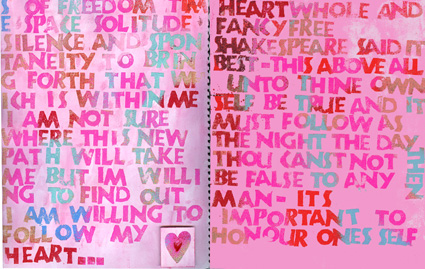 S OF FREEDOM TIM
E SPACE SOLITUDE
SILENCE AND SPON
TANEITY TO BRIN
G FORTH THAT WH
ICH IS WITHIN ME
I AM NOT SURE
WHERE THIS NEW
PATH WILL TAKE
ME BUT IM WILLI
NG TO FIND OUT
I AM WILLING TO
FOLLOW MY
HEART...
HEART WHOLE AND
FANCY FREE
SHAKESPEARE SAID IT
BEST-THIS ABOVE ALL
UNTO THINE OWN
SELF BE TRUE AND IT
MUST FOLLOW AS
THE NIGHT THE DAY
THOU CANST NOT THEN
BE FALSE TO ANY
MAN- ITS
IMPORTANT TO
HONOUR ONES SELF